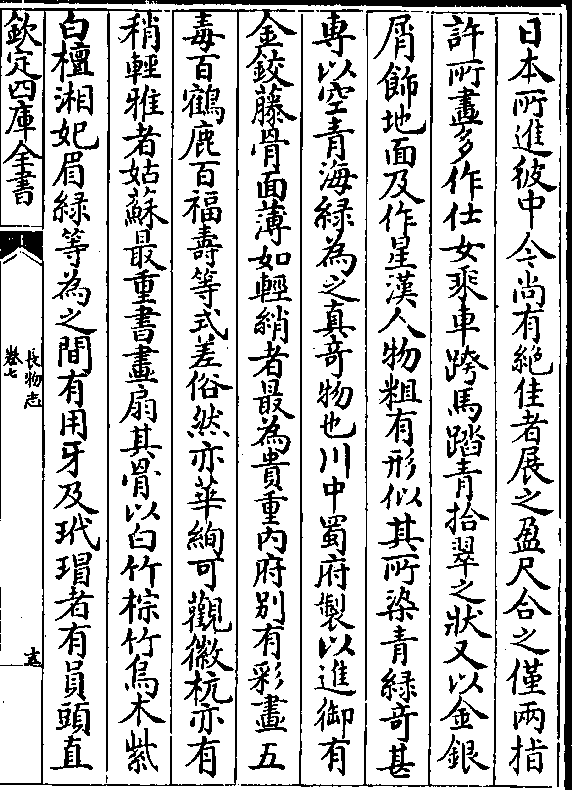 日本所進彼中今尚有絶佳者展之盈尺合之僅兩指
許所畫多作仕女乘車跨馬踏青拾翠之狀又以金銀
屑飾地面及作星漢人物粗有形似其所染青緑竒甚
專以空青海緑為之真竒物也川中蜀府製以進御有
金鉸藤骨面薄如輕綃者最為貴重内府别有彩畫五
毒百鶴鹿百福壽等式差俗然亦華絢可觀徽杭亦有
稍輕雅者姑蘇最重書畫扇其骨以白竹棕竹烏木紫
白檀湘妃眉緑等為之間有用牙及玳瑁者有員頭直
欽定四庫全書
長物志
卷七